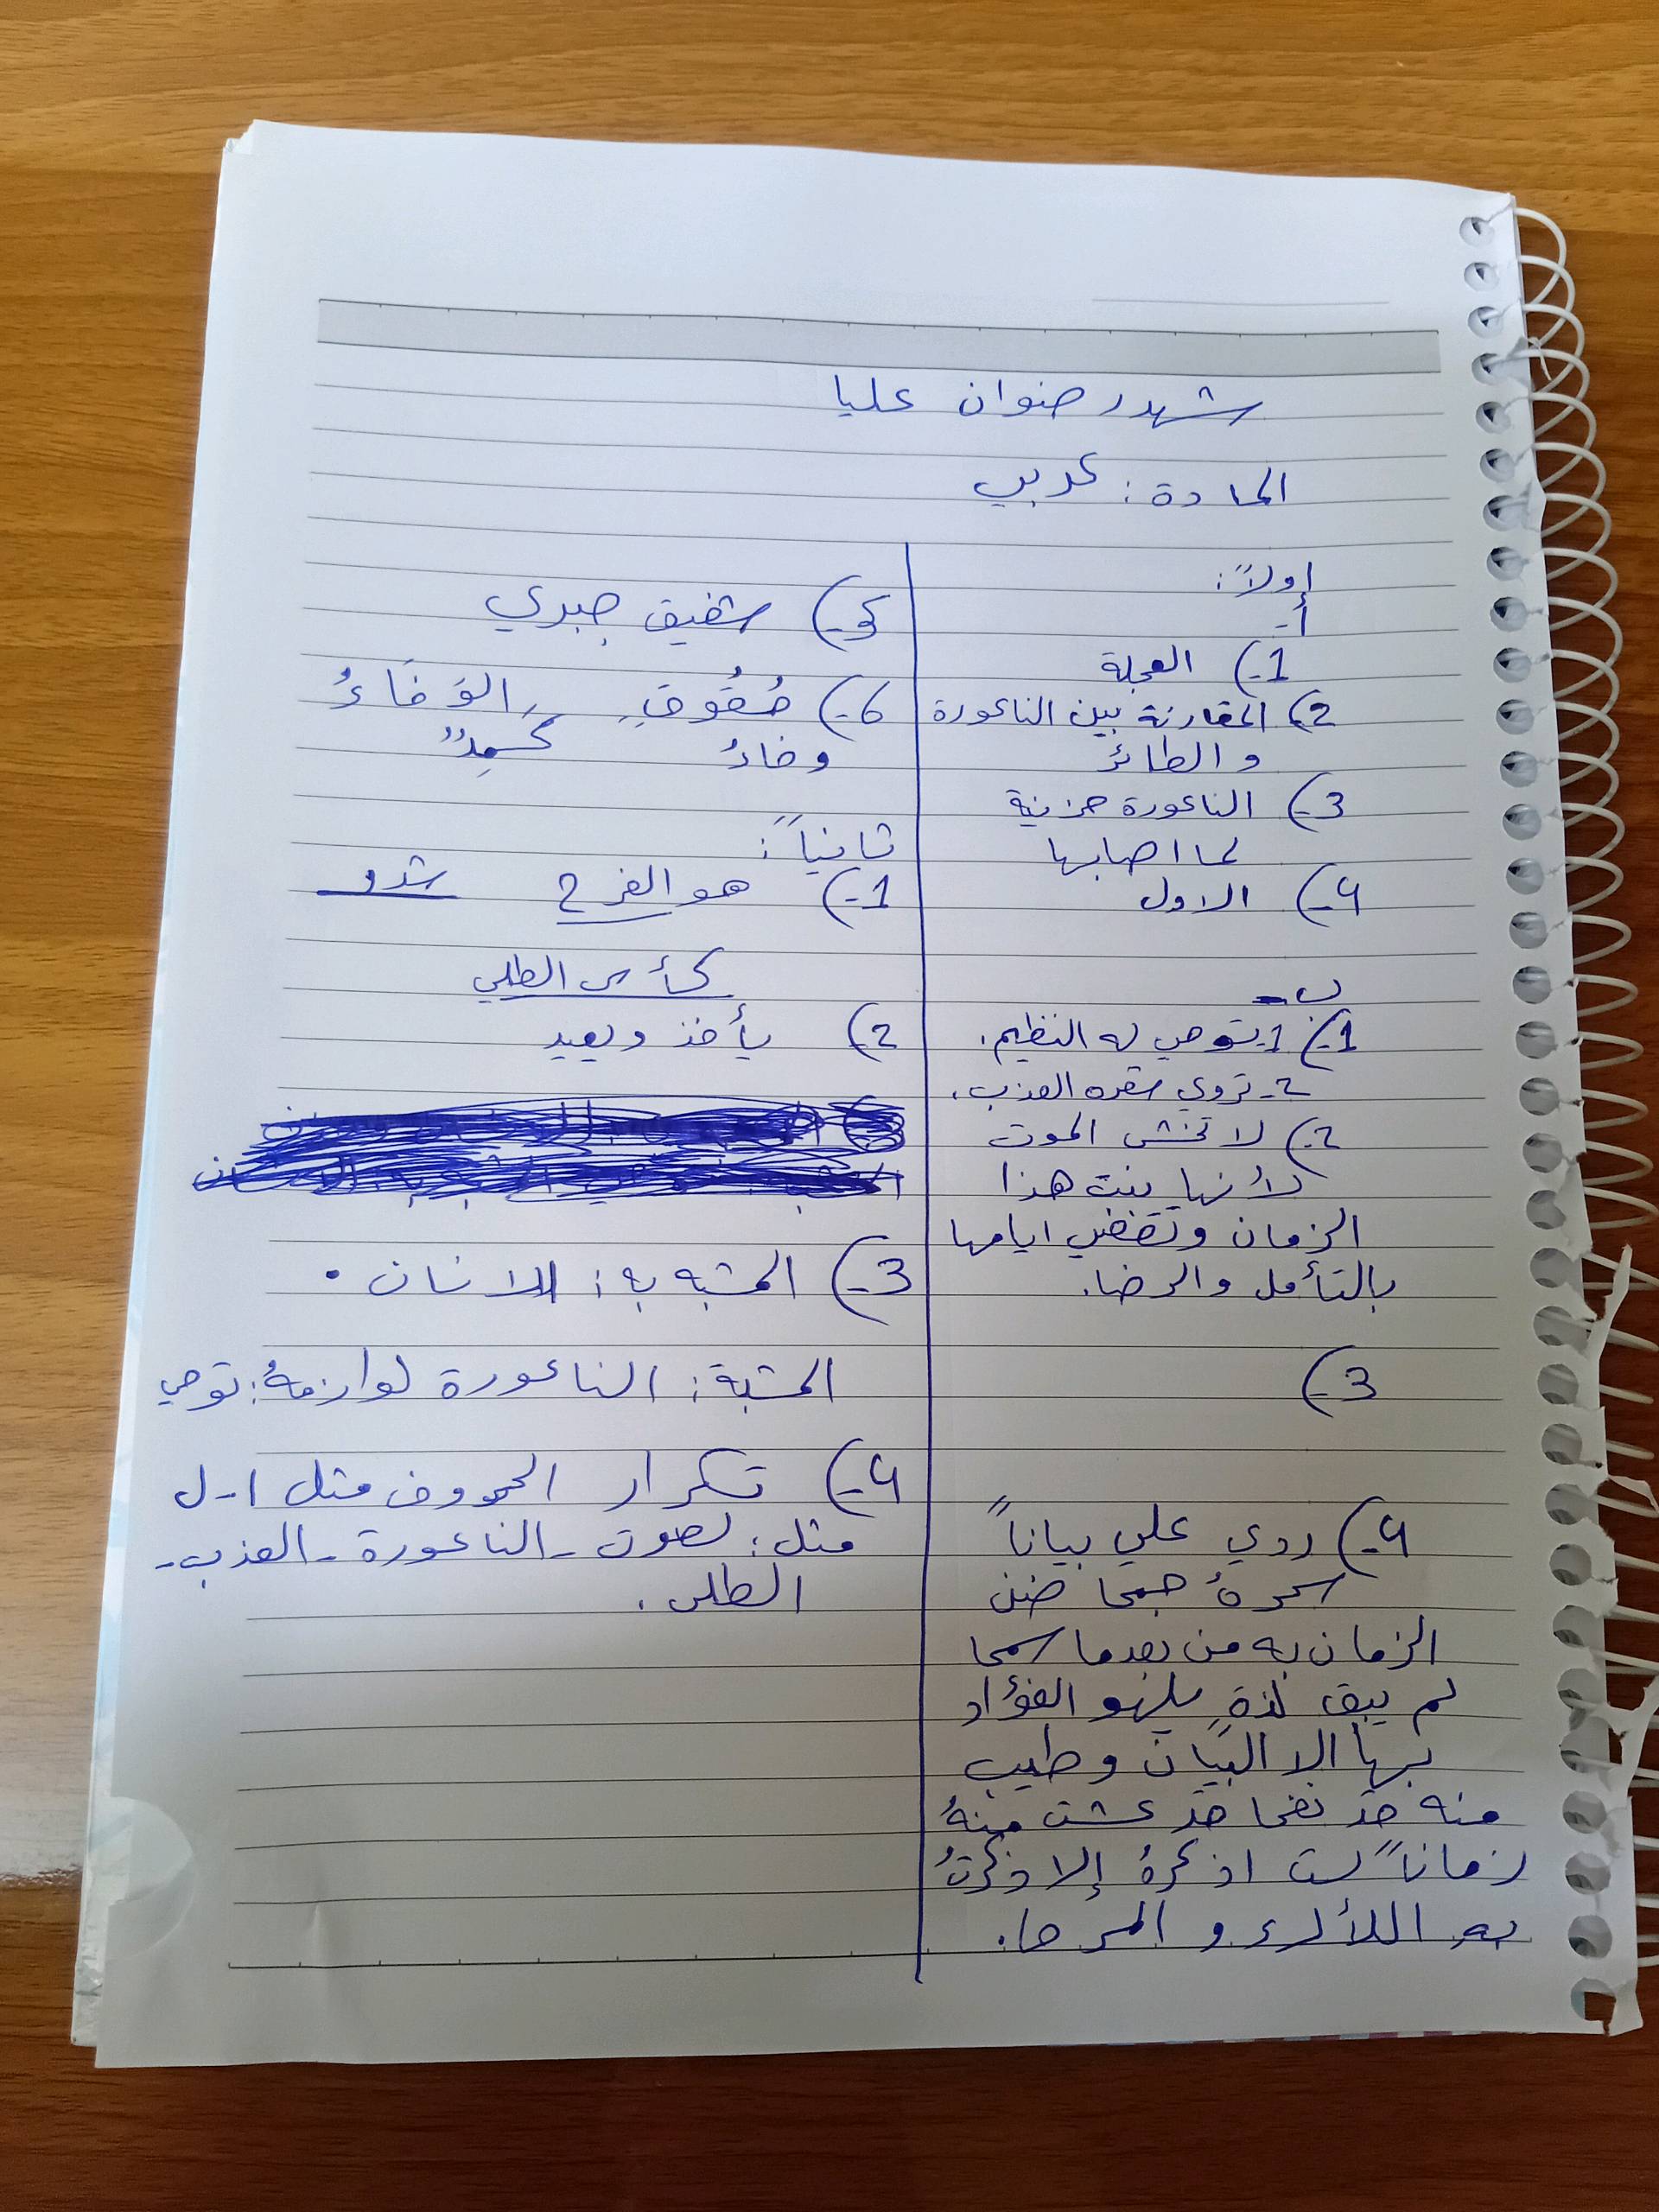 شهد رضوان عليا
المادة: عربي
أولاً:
أ-
1-) العجلة
2-) المقارنة بين الناعورة
والطائر
3-) الناعورة حزينة
لما اصابها
4-) الاول
ب-
1-) 1- توحي له النظيم.
2- تروي شعره العذب.
2-) لا تخشى الموت
لأنها بنت هذا
الزمان وتقضي ايامها
بالتأمل والرضا.
3-)
4-) ردي علي بياناً
سحرهُ جمحا ضنن
الزمان به من بعدما سمحا
لم يبق لذةٍ يلهو الفؤاد
بها الا البيان وطيب
منه قد نفحا قد عشت منهُ
زماناً لست اذكرهُ إلا ذكرتُ
به اللألاء و المرحا.
5-) شفيق جبري
6-) خُفُوقِ الوَفَاءُ
وفاءُ
ثانياً:
1-) هو الفرح شدو
كأس الطلى
2-) يأخذ ويعيد
3-) المشبه به: الانسان.
المشبة: الناعورة لوازمهُ: توحي
4-) تكرار الحروف مثل ا-ل
مثل: لصوت - الناعورة - العذب-
الطلى.